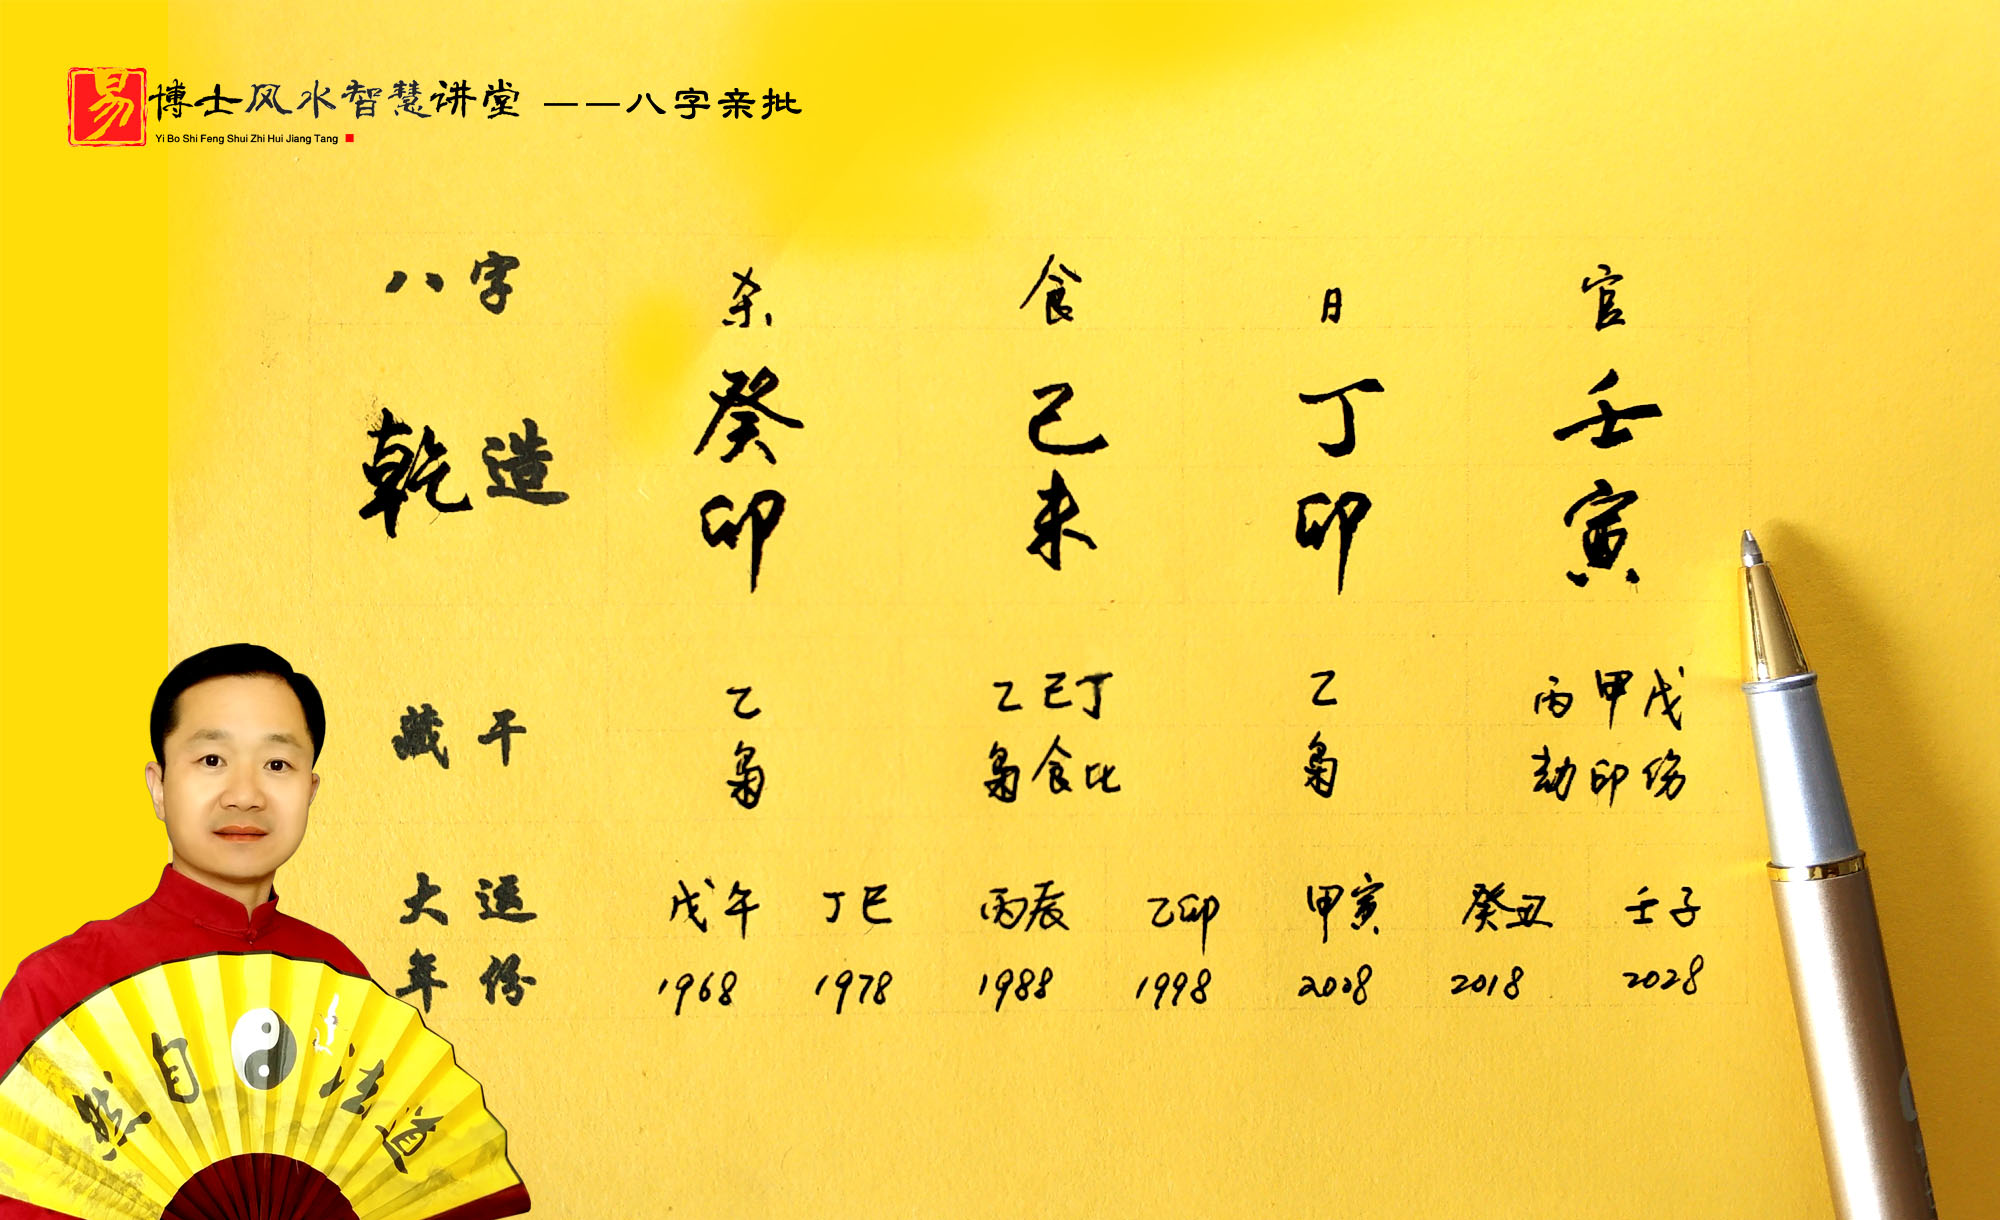 易博士风水智慧讲堂 ——八字亲批
Yi Bo Shi Feng Shui Zhi Hui Jiang Tang
八字 杀 食 日 官
乾造 癸 己 丁 壬
卯 未 卯 寅
藏干 乙 乙己丁 乙 丙甲戊
枭 枭食比 枭 劫印伤
大运 戊午 丁巳 丙辰 乙卯 甲寅 癸丑 壬子
年份 1968 1978 1988 1998 2008 2018 2028
道法自然